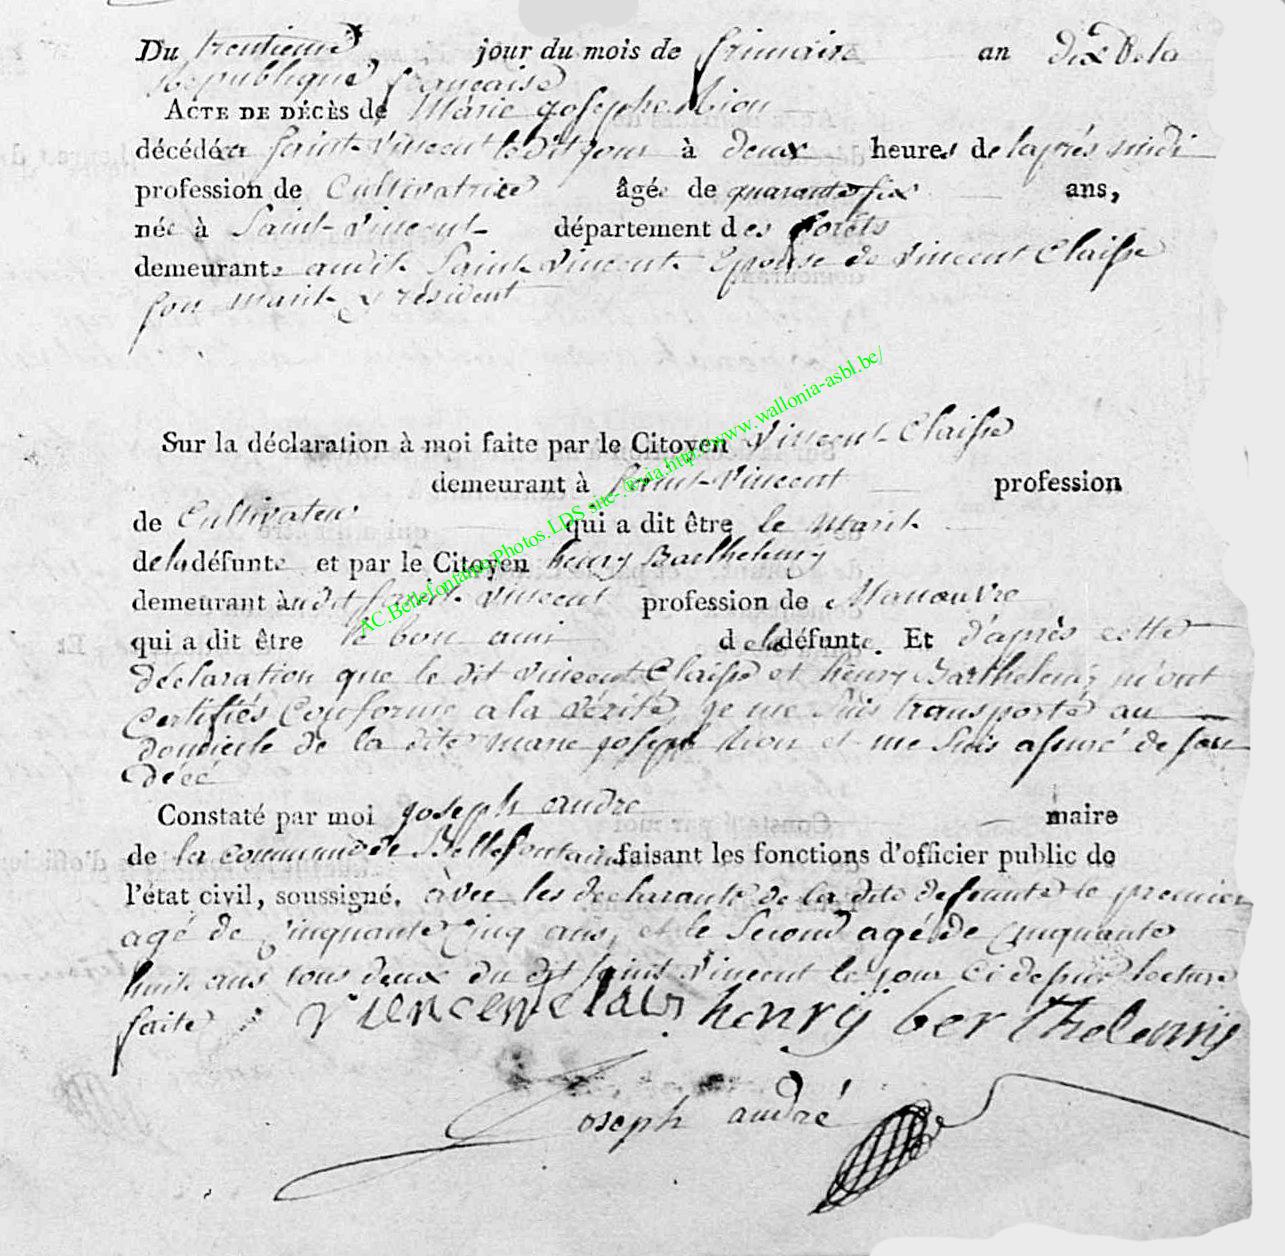 Du trentieme jour du mois de frimaire an dix De la
Republique française
ACTE DE DÉCÈS de Marie Josephe hion
décédée a Saint-Vincent le dit jour à deux heures de laprés midi
profession de Cultivatrice âgée de quarante six ans,
née à Saint-Vincent département des forêts
demeurante audit Saint Vincent Epouse de Vincent Claisse
son Marit y résident
Sur la déclaration à moi faite par le Citoyen Vincent Claisse
demeurant à Saint-Vincent profession
de Cultivateur qui a dit être le Marit
de la défunte et par le Citoyen henry Barthelemy
demeurant audit Saint Vincent profession de Manouvre
qui a dit être le bon ami de la défunte. Et d'après cette
déclaration que le dit Vincent Claisse et henry Barthelemy m'ont
Certifiés Conforme a la vérité, je me suis transporté au
domicile de la dite marie joseph hion et me suis assuré de son
décé
Constaté par moi joseph andre maire
de la commune de Bellefontaine faisant les fonctions d'officier public de
l'état civil, soussigné, àvec les declarants de la dite defunte le premier
agé de Cinquante Cinq ans, et le Second agé de Cinquante
huit ans tous deux du dit Saint Vincent le jour Ci dessus lecture
faite henrÿ berthelemÿ
Joseph andré
AC.Bellefontaine.Photos.LDS site- http://www.wallonia-asbl.be/